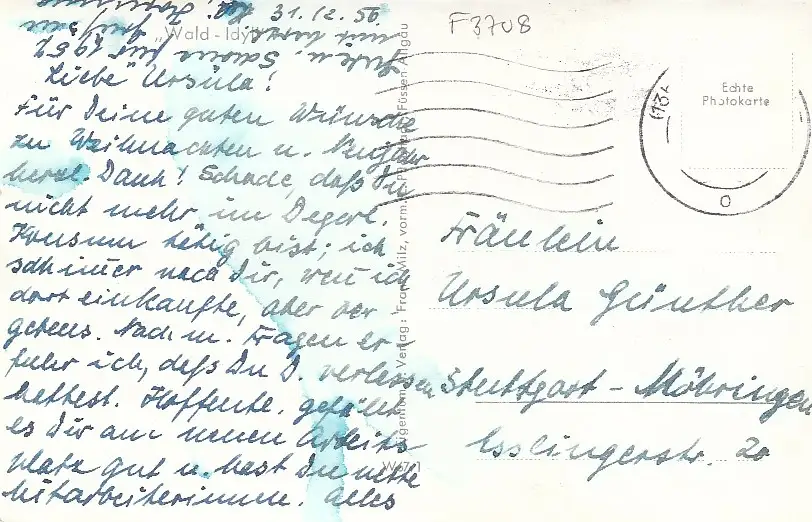 31.12.56.
"Wald-Idyll"
Liebe Ursula!
Für Deine guten Wünsche
zu Weihnachten u. Neujahr
herzl. Dank! Schade, daß Du
nicht mehr im Degerl.
Konsum tätig bist; ich
sah immer nach Dir, wenn ich
dort einkaufte, aber ver-
gebens. Nach m. Fragen er-
fuhr ich, daß Du D. verlassen
hattest. Hoffentl. gefällt
es Dir am neuen Arbeits
platz gut u. hast Du nette
Mitarbeiterinnen. Alles
Gute u. Schöne für 1957
Eigentum u. Verlag: Franz Milz, vorm. Füssen-Allgäu
W 67/1
F3708
Echte
Photokarte
(13
Fräulein
Ursula Günther
Stuttgart - Möhringen
Esslingerstr. 20